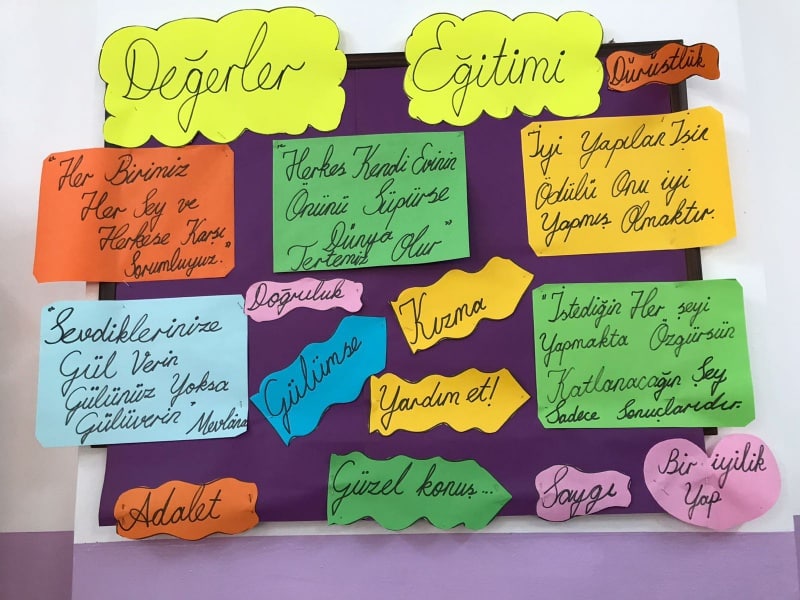 Değerler
Eğitimi
Dürüstlük
"Her Birimiz
Her Şey ve
Herkese Karşı
Sorumluyuz."
"Herkes Kendi Evinin
Önünü Süpürse
Dünya
Tertemiz Olur"
İyi Yapılan İşin
Ödülü Onu iyi
Yapmış Olmaktır.
"Sevdiklerinize
Gül Verin
Gülünüz Yoksa
Gülüverin" Mevlâna
Doğruluk
Gülümse
Kızma
Yardım et!
"İstediğin Her şeyi
Yapmakta Özgürsün
Katlanacağın Şey
Sadece Sonuçlarıdır.
Adalet
Güzel konuş...
Saygı
Bir iyilik
Yap